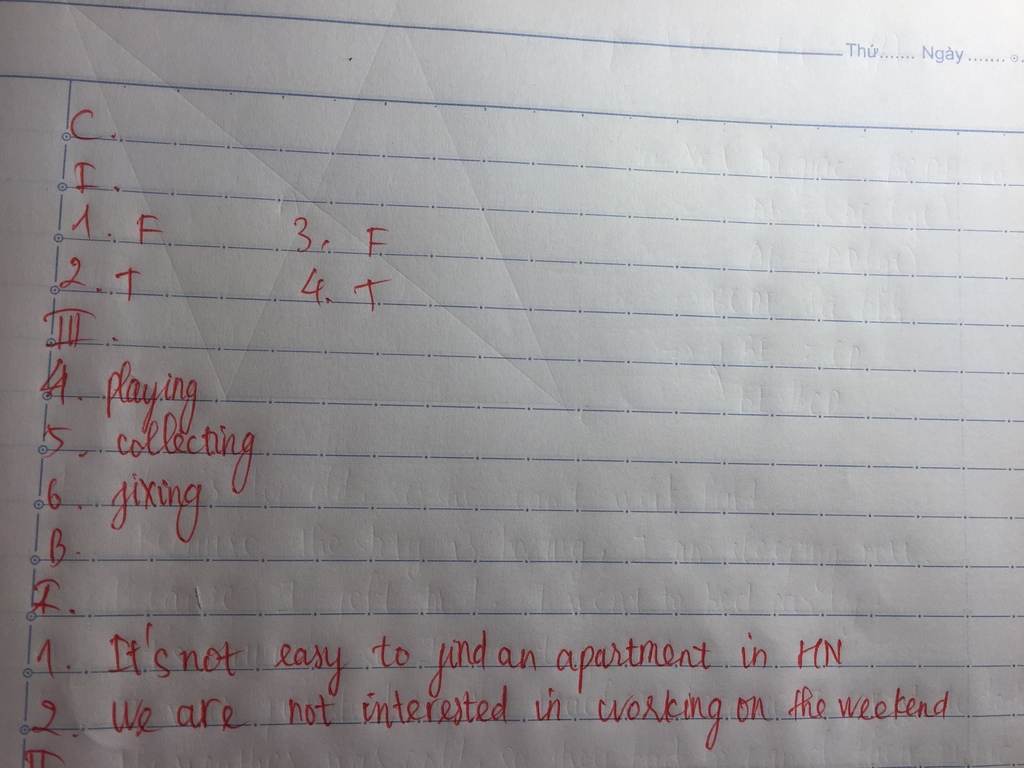 Thứ....... Ngày.......
C.
I.
1. F 3. F
2. T 4. T
III.
4. playing
5. collecting
6. fixing
B.
I.
1. It's not easy to find an apartment in HN
2. We are not interested in working on the weekend
II